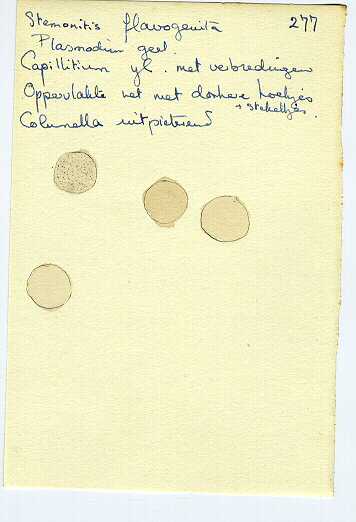 Stemonitis flavogenita 277
Plasmodium geel.
Capillitium yl. met verbredingen
Oppervlakte net met donkere hoekjes
+ stekeltjes.
Columella uitpieterend